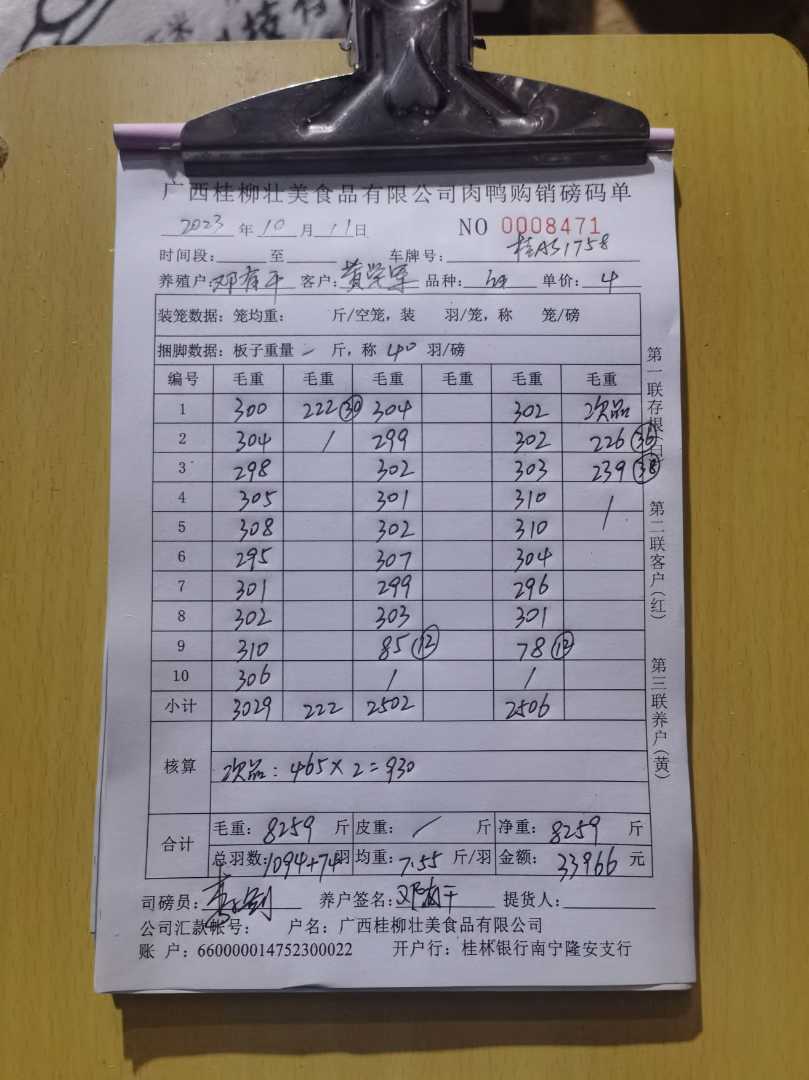 广西桂柳壮美食品有限公司肉鸭购销磅码单
2023 年 10 月 11 日 NO 0008471
时间段: 至 车牌号: 桂A51758
养殖户: 邓有干 客户: 黄 品种: 单价: 4
装笼数据: 笼均重: 斤/空笼, 装 羽/笼, 称 笼/磅
捆脚数据: 板子重量 / 斤, 称 40 羽/磅
编号 毛重 毛重 毛重 毛重 毛重 毛重
1 300 222 30 304 302 次品
2 304 / 299 302 226 36
3 298 302 303 239 38
4 305 301 310 /
5 308 302 310
6 295 307 304
7 301 299 296
8 302 303 301
9 310 85 12 78 12
10 306 / /
小计 3029 222 2502 2506
核算 次品: 465×2=930
合计 毛重: 8259 斤 皮重: / 斤 净重: 8259 斤
总羽数: 1094+74 羽 均重: 7.55 斤/羽 金额: 33966 元
司磅员: 养户签名: 邓有干 提货人:
公司汇款帐号: 户名: 广西桂柳壮美食品有限公司
账 户: 660000014752300022 开户行: 桂林银行南宁隆安支行
第一联存根(白) 第二联客户(红) 第三联养户(黄)